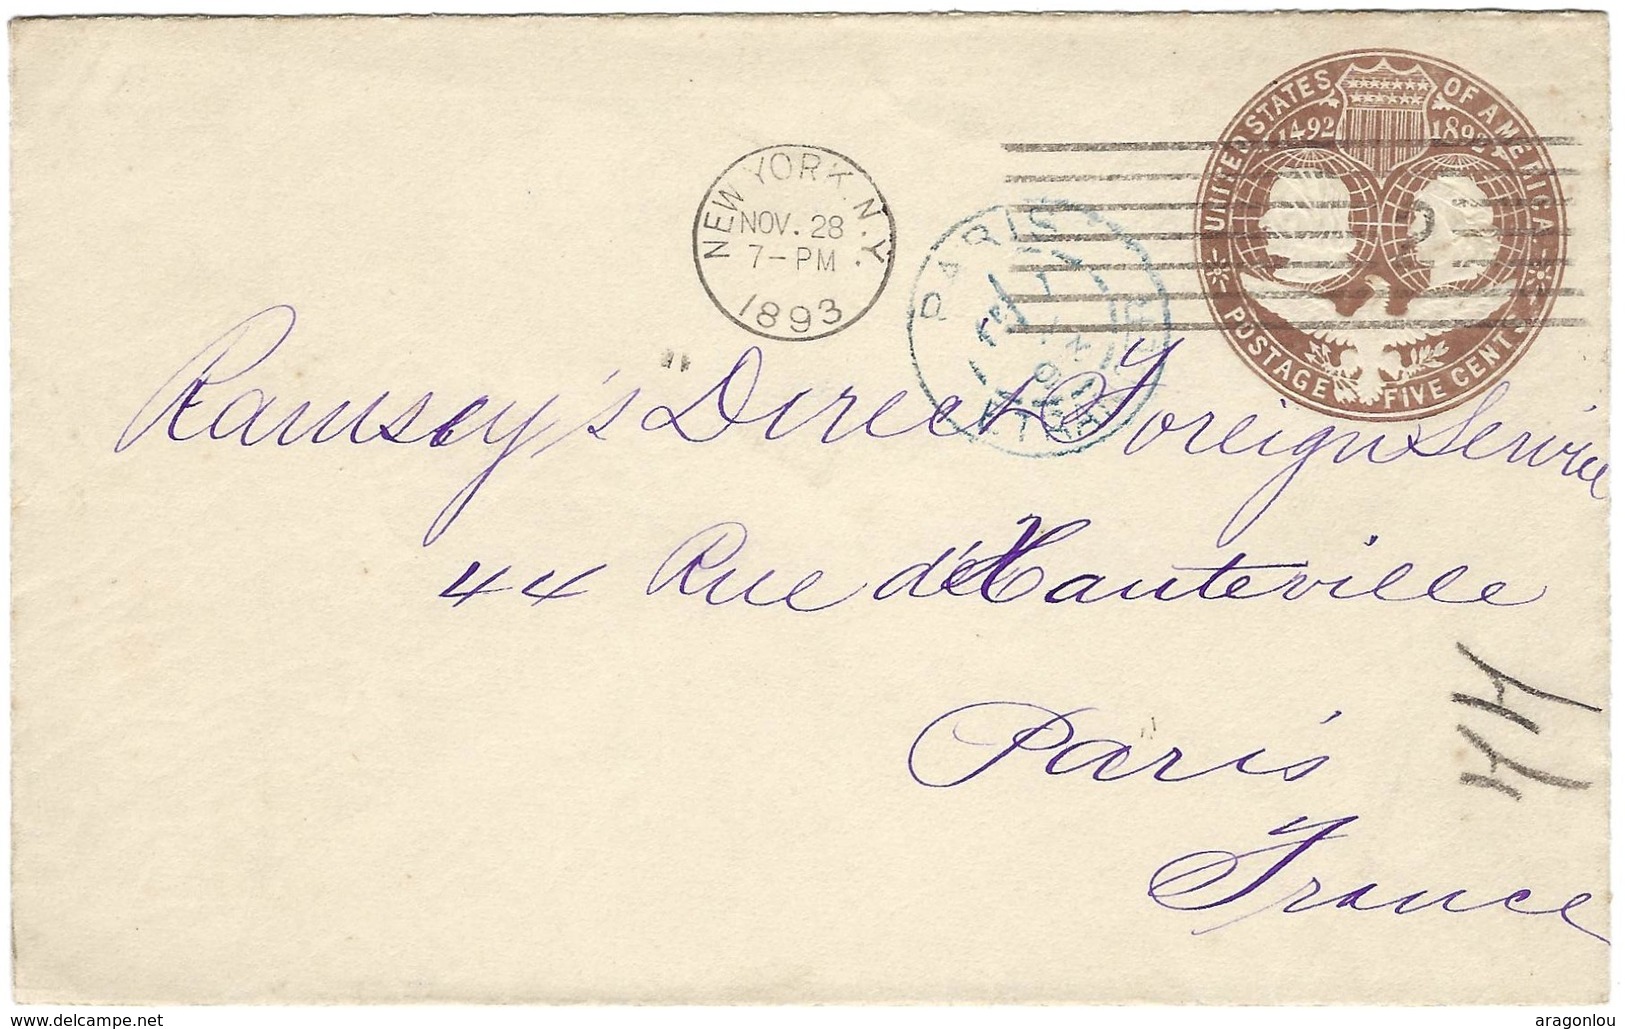 UNITED STATES OF AMERICA
1492 1892
POSTAGE FIVE CENTS
NEW YORK. N.Y.
NOV. 28
7-PM
1893
2
PARIS
ETRANGER
Ramsey's Direct Foreign Service
44 Rue d'Hauteville
Paris
France
44
www.delcampe.net
aragonlou